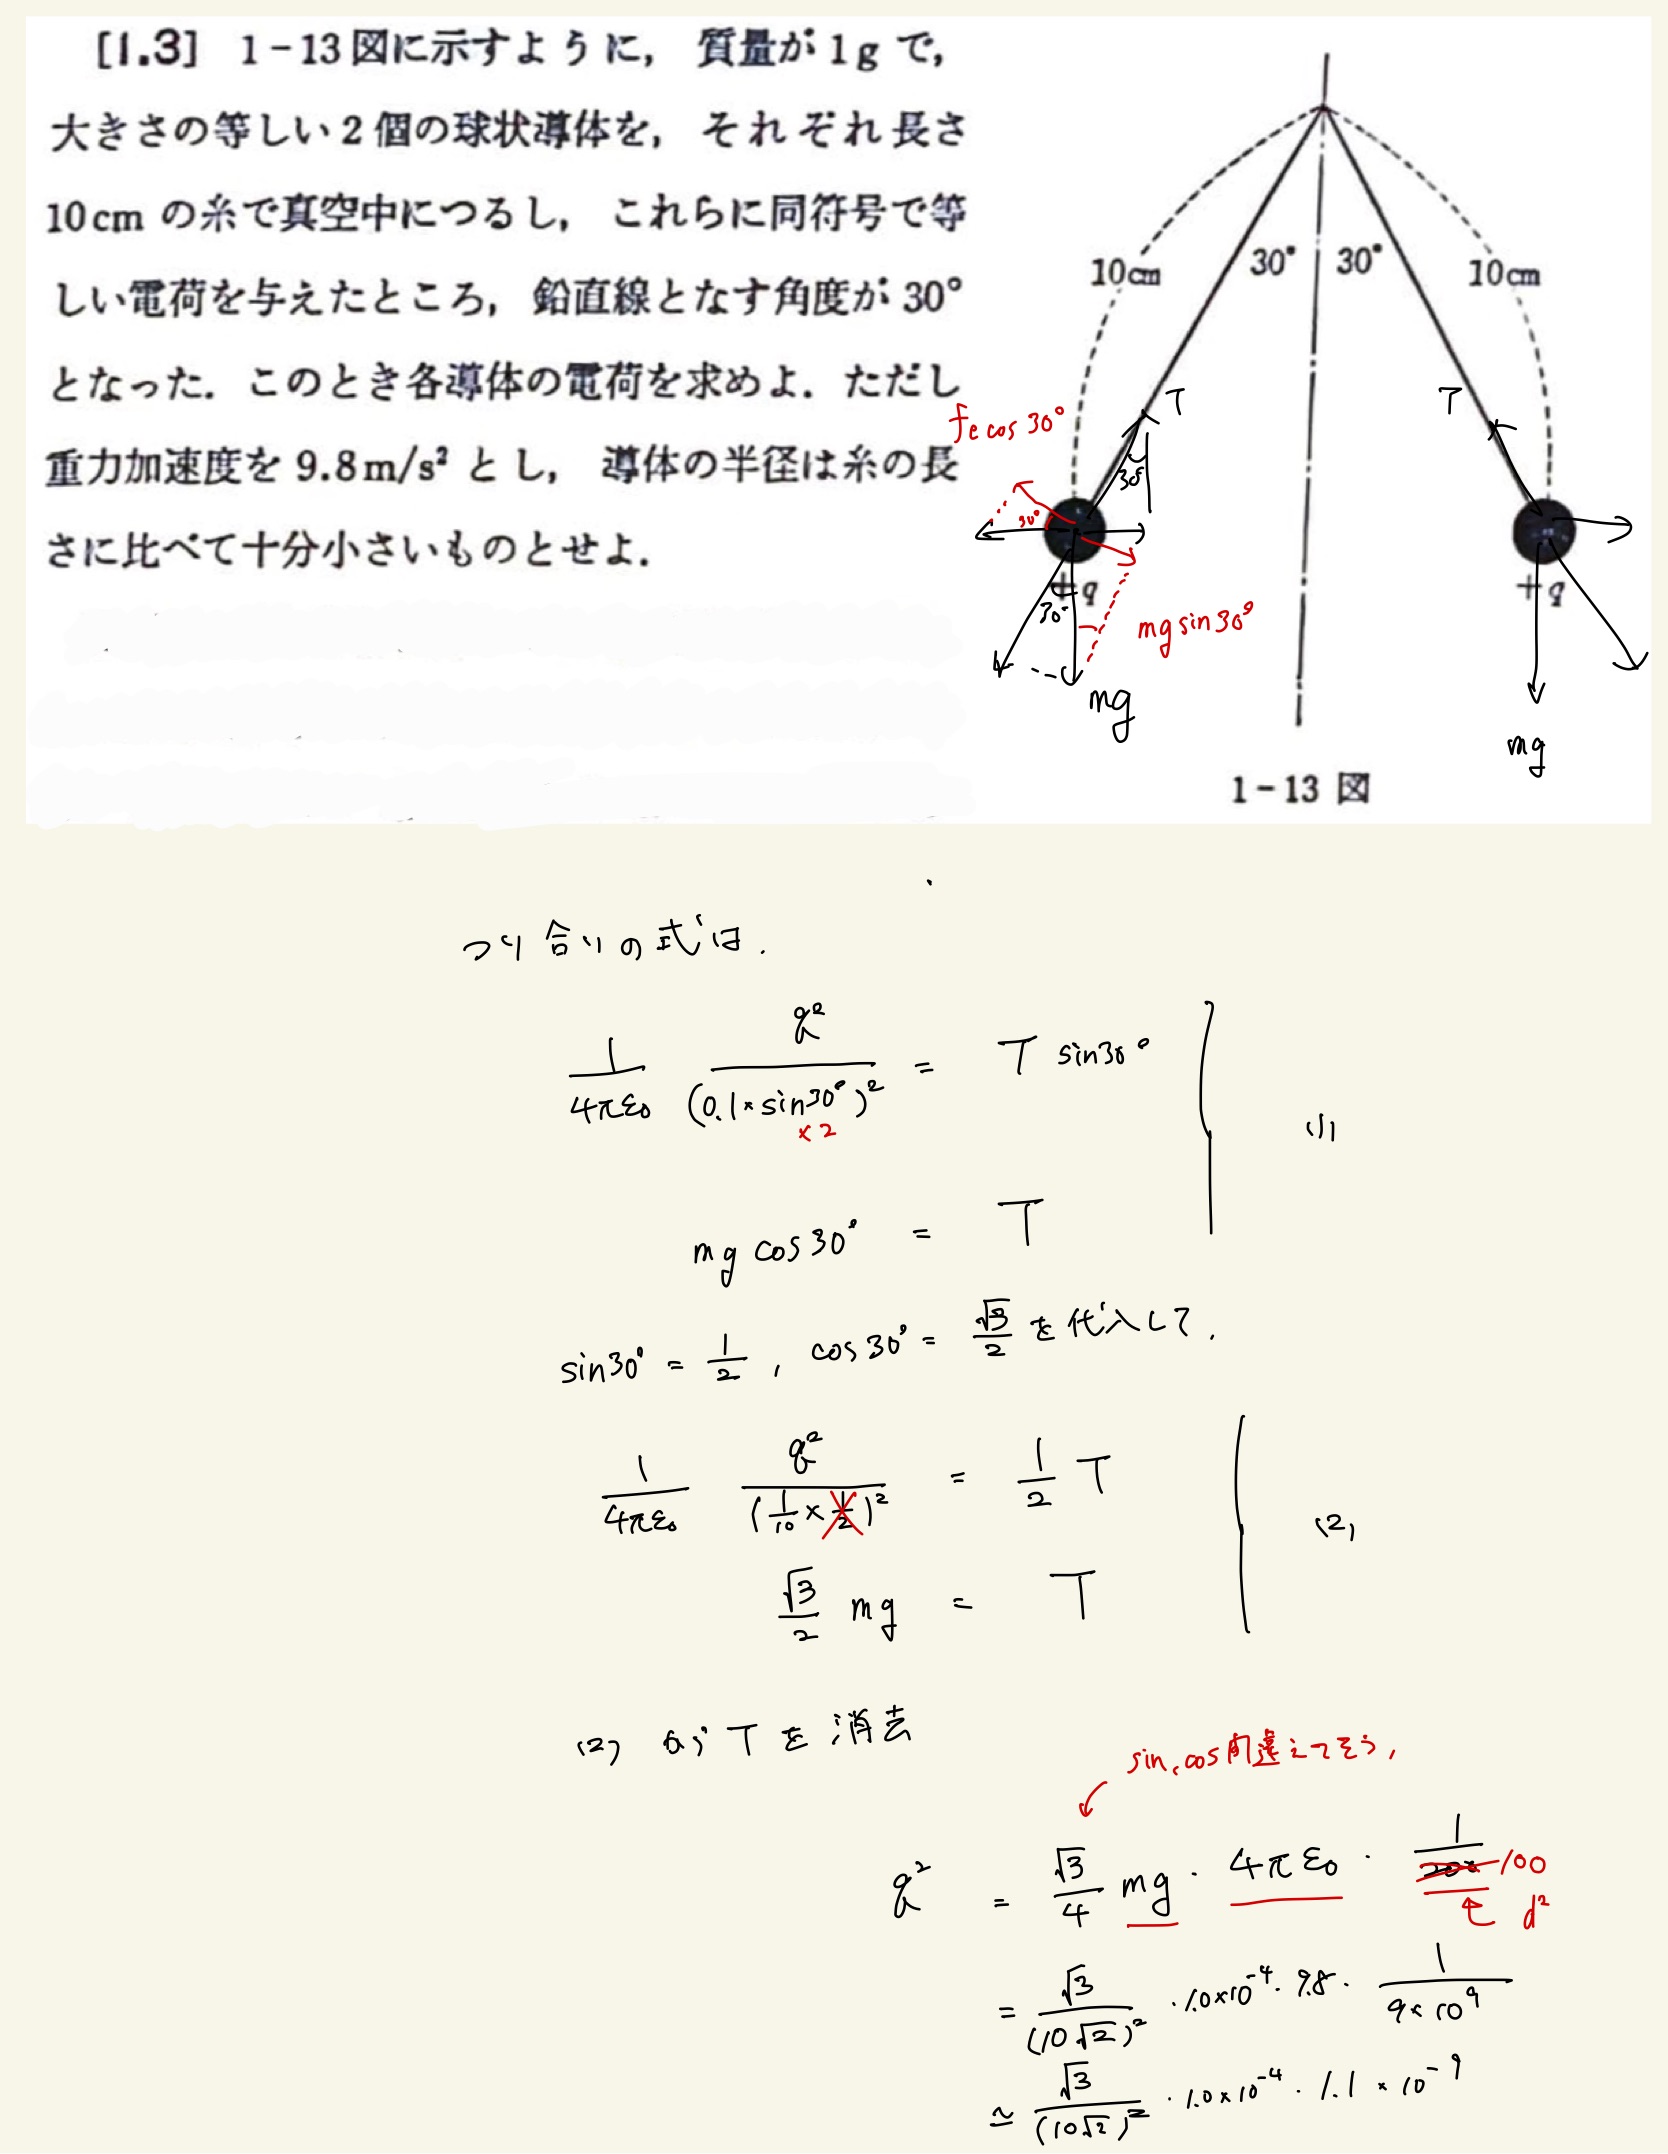 [1.3] 1-13図に示すように, 質量が1gで,
大きさの等しい2個の球状導体を, それぞれ長さ
10cmの糸で真空中につるし, これらに同符号で等
しい電荷を与えたところ, 鉛直線となす角度が30°
となった. このとき各導体の電荷を求めよ. ただし
重力加速度を9.8m/s²とし, 導体の半径は糸の長
さに比べて十分小さいものとせよ.
10cm 30° 30° 10cm
fe cos 30° T T
30°
30°
+q +q
30°
mg sin 30°
mg
mg
1-13 図
つり合いの式は.
1/4πε₀ q²/(0.1×sin30°×2)² = T sin30° (1)
mg cos30° = T
sin30° = 1/2, cos30° = √3/2 を代入して,
1/4πε₀ q²/(1/10×1/2)² = 1/2 T (2)
√3/2 mg = T
(2) から T を消去
sin, cos間違えてそう,
q² = √3/4 mg · 4πε₀ · 1/200 100
d²
= √3/(10√2)² · 1.0×10⁻⁴ · 9.8 · 1/9×10⁹
≃ √3/(10√2)² · 1.0×10⁻⁴ · 1.1×10⁻⁹